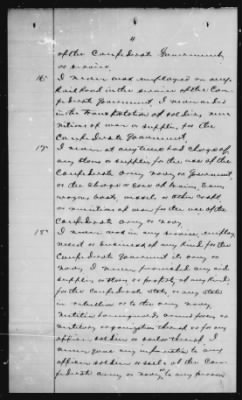 4
of the Confederate Government,
or service.
16. I never was employed on any
Railroad in the service of the Con-
federate Government, I never aided
in the transportation of soldiers, mu-
nitions of war or supplies, for the
Confederate Government.
17. I never at any time had charge of
any stores or supplies for the use of the
Confederate army, navy, or Government,
or the charge or care of trains, teams,
wagons, boats, vessels or other craft
or munitions of war for the use of the
Confederate army or navy.
18. I never was in any service, employ
ment or business of any kind for the
Confederate Government its army or
navy, I never furnished any aid
supplies or stores or property of any kind,
for the Confederate State, or any State
in rebellion or to the army, navy,
militia homeguards, armed force, or
military organization thereof or for any
officer, soldier or sailor thereof. I
never gave any information to any
officer soldier or sailor of the Con-
federate army or navy, or to any person